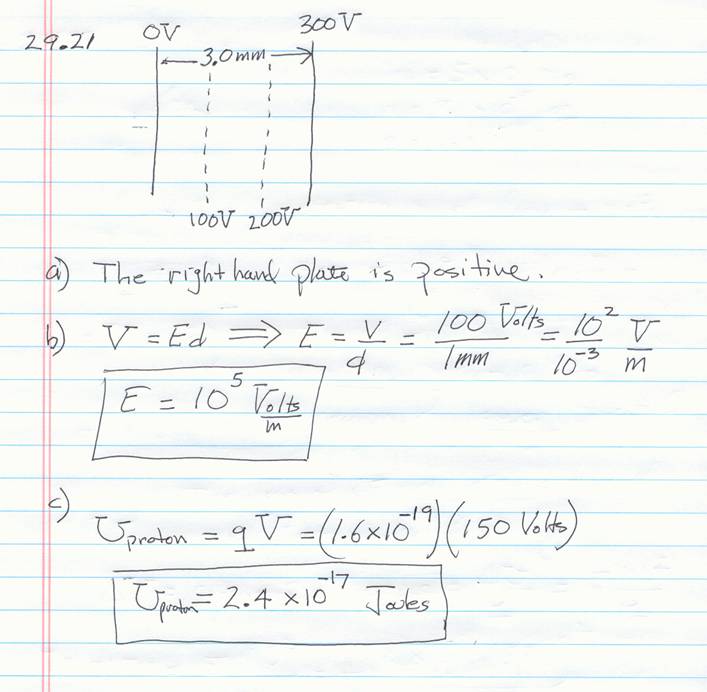 29.21
0V 300V
3.0mm
100V 200V
a) The right hand plate is positive.
b) V = Ed ⟹ E = V/d = 100 Volts/1mm = 10²/10⁻³ V/m
E = 10⁵ Volts/m
c)
Uproton = qV = (1.6×10⁻¹⁹)(150 Volts)
Uproton = 2.4 ×10⁻¹⁷ Joules